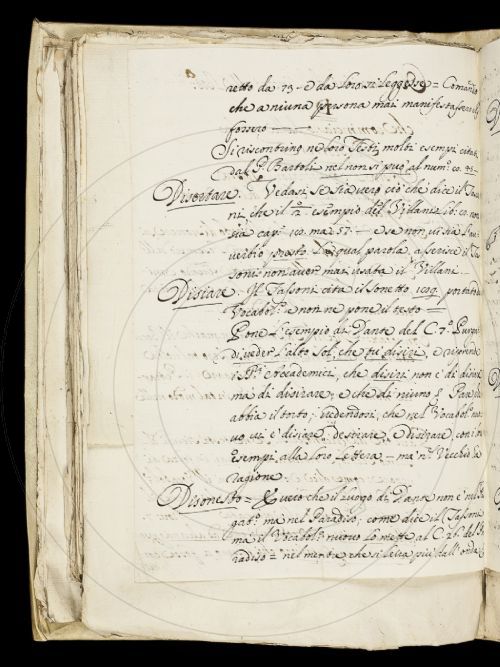 netto da 73 - e da loro si leggesse = Comando
che a niuna persona mai manifestassero il
forziero
Si riscontrino ne loro Testi molti esempi citati
dal P. Bartoli nel non si può al num.º co. 93-
Disertare. Vedasi se sia vero ciò che dice il Tasso
ni che il 2.º esempio del Villani lib: 10. non
sia cap: 150. ma 57: - e se non vi sia l'au
verbio presto. La qual parola asserisce il Tas
soni non aver mai usata il Villani.
Disiare. Il Tassoni cita il Sonetto 109. portato
Vocabol.º e non ne pone il testo =
Pone l'esempio di Dante del C. 7.º Purg:
di veder l'alto Sol, che tu disiri, e riprende
i SS.ri Accademici, che disiri non è di disiare
ma di disirare; e che di niuno
abbia il torto; vedendosi, che nel Vocabol.º nuo
vo vi è disiare, desirare, e disirare con i
esempi alla loro Lettera - ma 'n Vecchio
ragione
Disonesto = È vero che il luogo di Dante non è nel
gat.º ma nel Paradiso; come dice il Tassoni
ma il Vocabol.º nuovo lo mette al C. 26. del
radiso = nel mentre che si leva più dall'onda